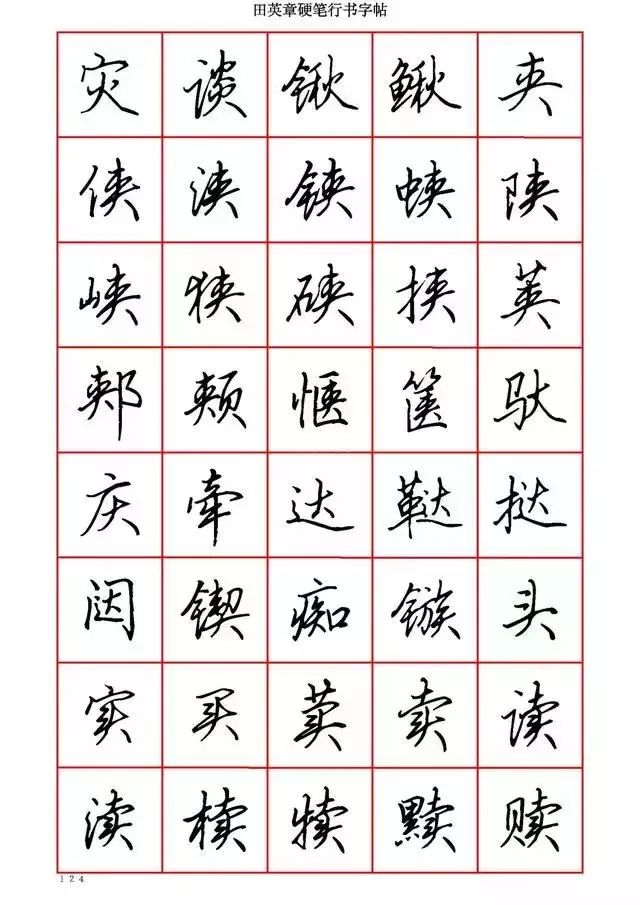 田英章硬笔行书字帖
灾谈锹鳅夹
侠浃铗蛱陕
峡狭硖挟荚
郏颊惬箧驮
庆牵达鞑挞
闼锲痴镞头
实买荬卖读
渎椟犊黩赎
124